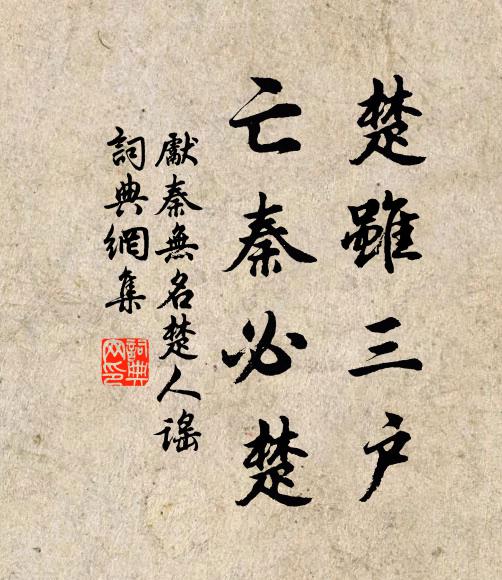 楚雖三户
亡秦必楚
獻秦無名楚人謡
詞典網集
詞典網印